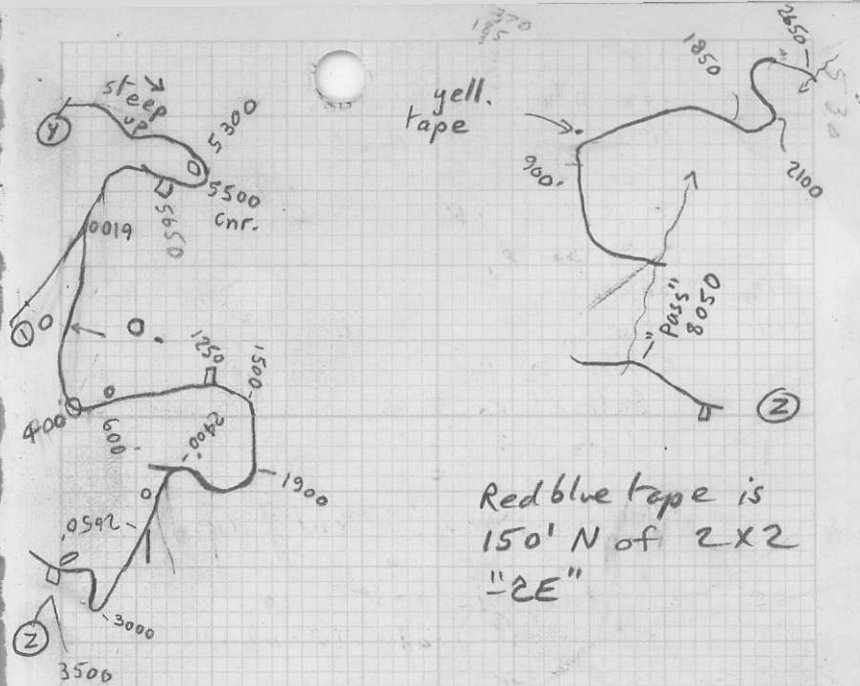 370
185
steep
up
Y
5300
5500
cnr.
5650
6100
1
0
1250
1500
400'
600'
2400'
1900
2650'
3000
2
3500
yell.
tape
900'
1850
2650
2100
"Pass"
8050
2
Red blue tape is
150' N of 2x2
"2E"